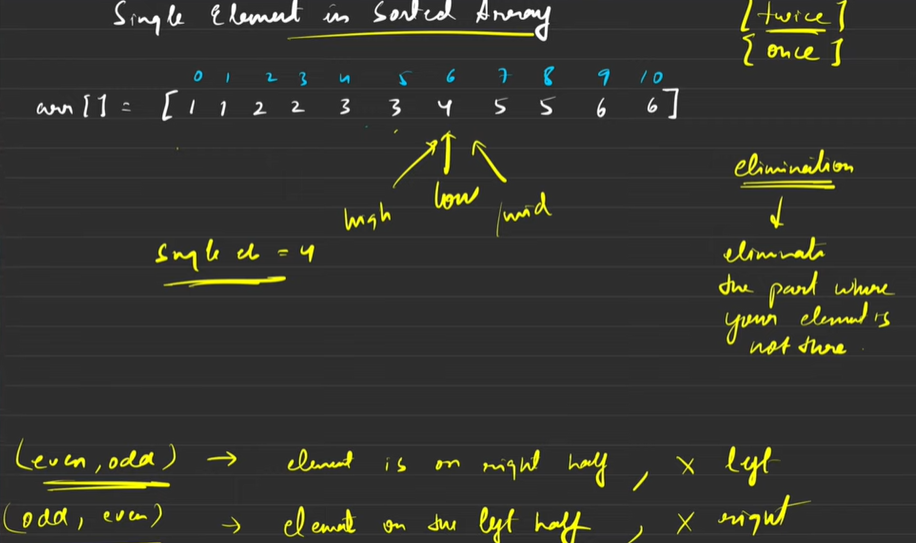 Single Element in Sorted Array
[twice]
[once]
0 1 2 3 4 5 6 7 8 9 10
arr[] = [1 1 2 2 3 3 4 5 5 6 6]
high low mid
Single el = 4
elimination
eliminate
the part where
your element is
not there
(even, odd) → element is on right half, × left
(odd, even) → element on the left half, × right